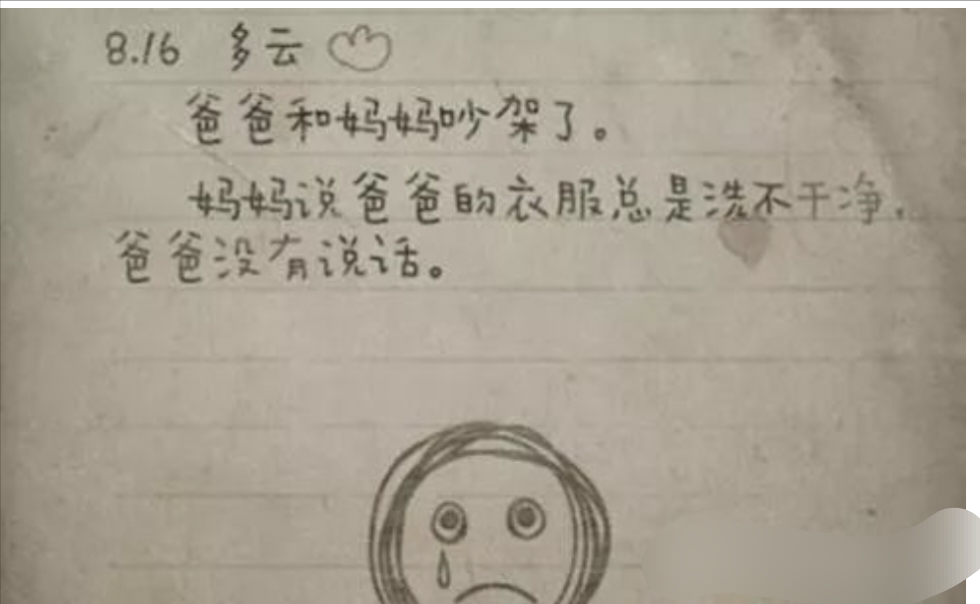 8.16 多云
爸爸和妈妈吵架了。
妈妈说爸爸的衣服总是洗不干净,
爸爸没有说话。